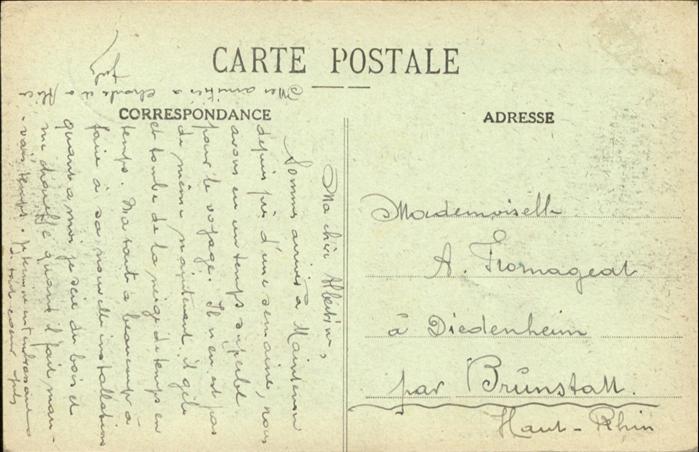 CARTE POSTALE
CORRESPONDANCE
ADRESSE
Ma chère Albertine,
Sommes arrivés à Maintenon
depuis près d'une semaine, nous
avons eu un temps superbe
pour le voyage. Il n'en est pas
de même maintenant il gèle
et tombe de la neige de temps en
temps. Ma tante a beaucoup à
faire à sa nouvelle installation
quant à moi, je scie du bois et
me chauffe quand il fait mau-
vais temps. Je termine en t'embrassant
de tout coeur
Mes amitiés à et à
Mademoiselle
A. Fromageat
à Diedenheim
par Brunstatt.
Haut-Rhin